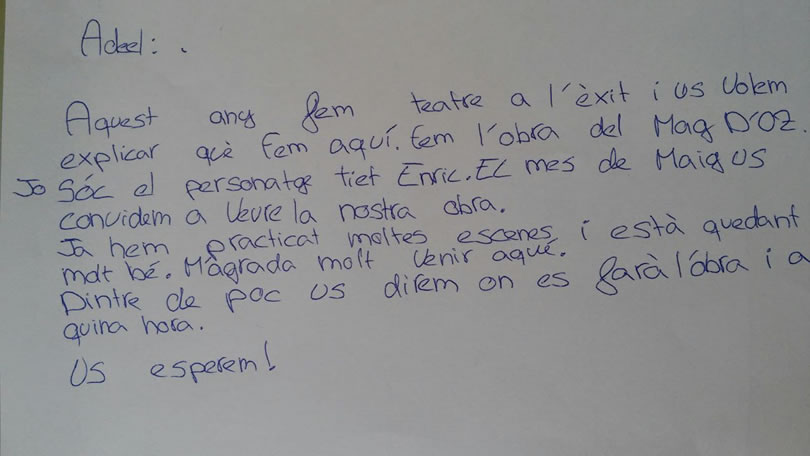 Adeel: .
Aquest any fem teatre a l'èxit i us volem
explicar què fem aquí. Fem l'obra del Mag D'OZ.
Jo Sóc el personatge tiet Enric. El mes de Maig us
convidem a veure la nostra obra.
Ja hem practicat moltes escenes i està quedant
molt bé. M'agrada molt venir aquí.
Dintre de poc us direm on es farà l'obra i a
quina hora.
Us esperem!